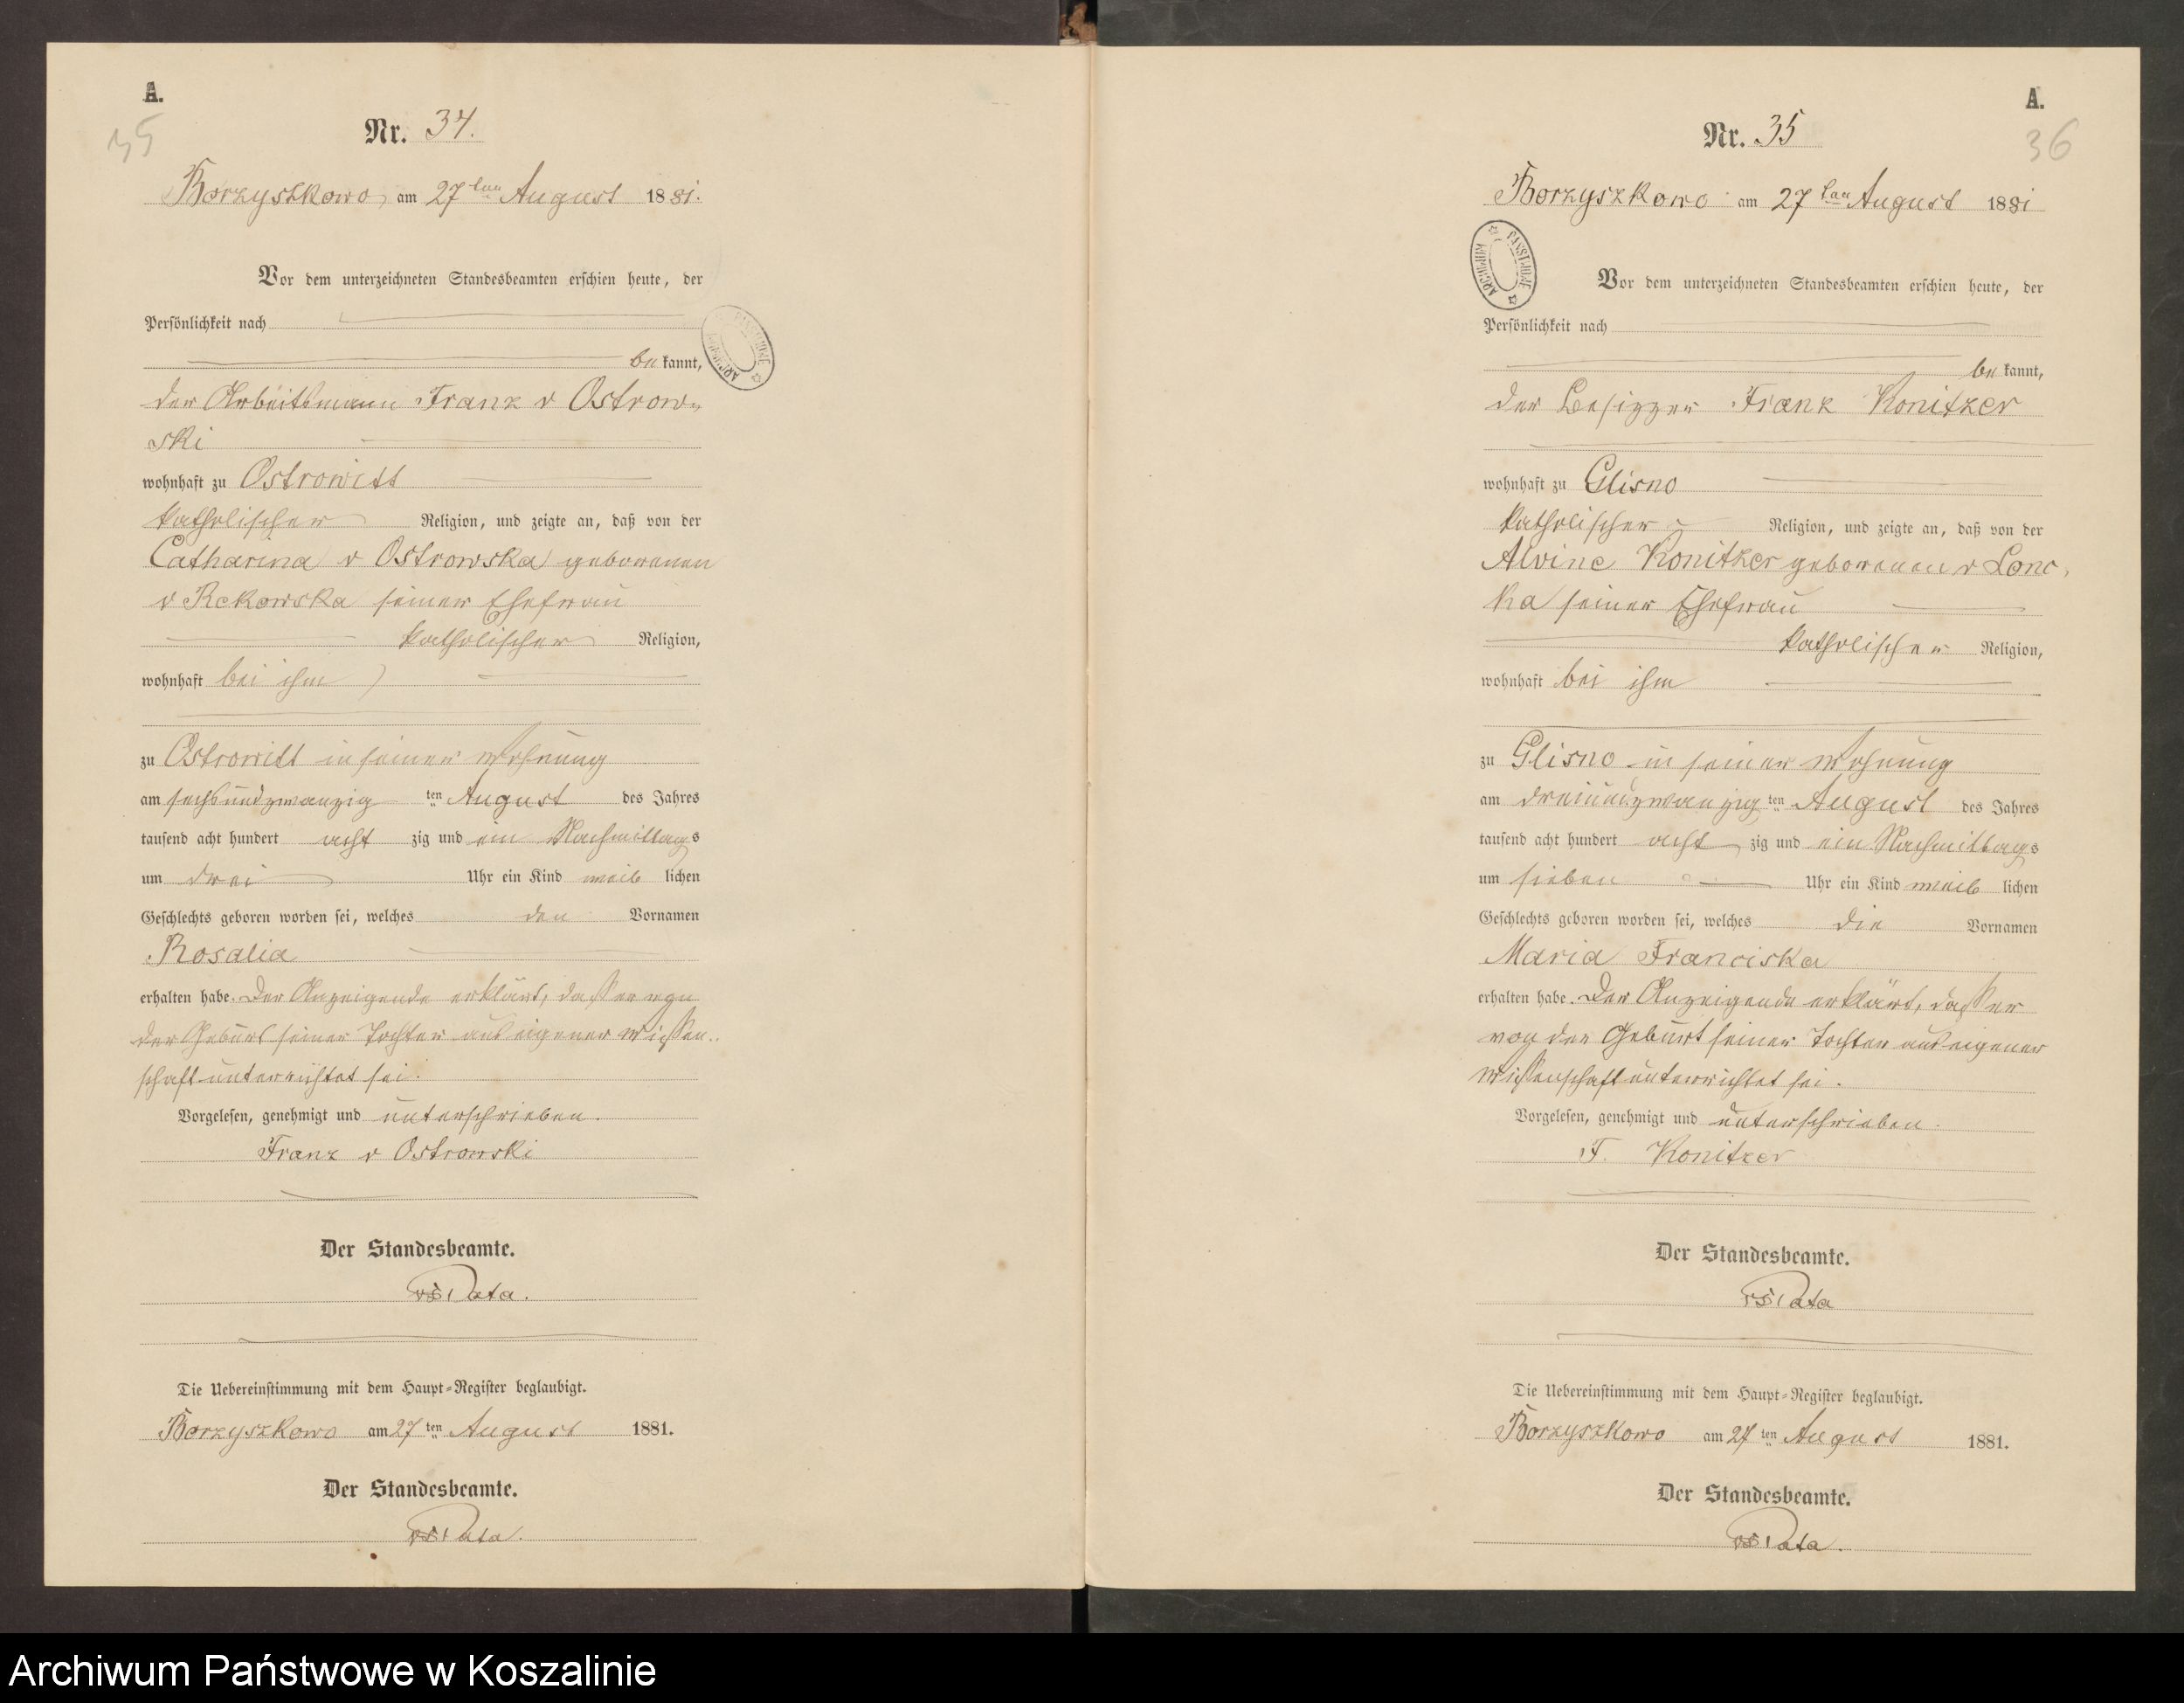 A.
35
Nr. 34.
Borzyszkowo, am 27ten August 1881.
Vor dem unterzeichneten Standesbeamten erschien heute, der
Persönlichkeit nach
be kannt,
der Arbeitsmann Franz v Ostrow-
ski
wohnhaft zu Ostrowitt
katholischer Religion, und zeigte an, daß von der
Catharina v Ostrowska geborenen
v Rekowska seiner Ehefrau
katholischer Religion,
wohnhaft bei ihm
zu Ostrowitt in seiner Wohnung
am sechsundzwanzig ten August des Jahres
tausend acht hundert acht zig und ein Nachmittags
um drei Uhr ein Kind weib lichen
Geschlechts geboren worden sei, welches den Vornamen
Rosalia
erhalten habe. Der Anzeigende erklärt, daß er von
der Geburt seiner Tochter aus eigener Wissen-
schaft unterrichtet sei.
Vorgelesen, genehmigt und unterschrieben.
Franz v Ostrowski
Der Standesbeamte.
Pata.
Die Uebereinstimmung mit dem Haupt-Register beglaubigt.
Borzyszkowo am 27 ten August 1881.
Der Standesbeamte.
Pata.
A.
36
Nr. 35
Borzyszkowo am 27ten August 1881
ARCHIWUM PAŃSTWOWE
Vor dem unterzeichneten Standesbeamten erschien heute, der
Persönlichkeit nach
be kannt,
der Besitzer Frank Konitzer
wohnhaft zu Glisno
katholischer Religion, und zeigte an, daß von der
Alvine Konitzer geborenen v Lonc-
ka seiner Ehefrau
katholischer Religion,
wohnhaft bei ihm
zu Glisno in seiner Wohnung
am dreiundzwanzig ten August des Jahres
tausend acht hundert acht zig und ein Nachmittags
um sieben Uhr ein Kind weib lichen
Geschlechts geboren worden sei, welches die Vornamen
Maria Franciska
erhalten habe. Der Anzeigende erklärt, daß er
von der Geburt seiner Tochter aus eigener
Wissenschaft unterrichtet sei.
Vorgelesen, genehmigt und unterschrieben.
F. Konitzer
Der Standesbeamte.
Pata
Die Uebereinstimmung mit dem Haupt-Register beglaubigt.
Borzyszkowo am 27 ten August 1881.
Der Standesbeamte.
Pata.
Archiwum Państwowe w Koszalinie